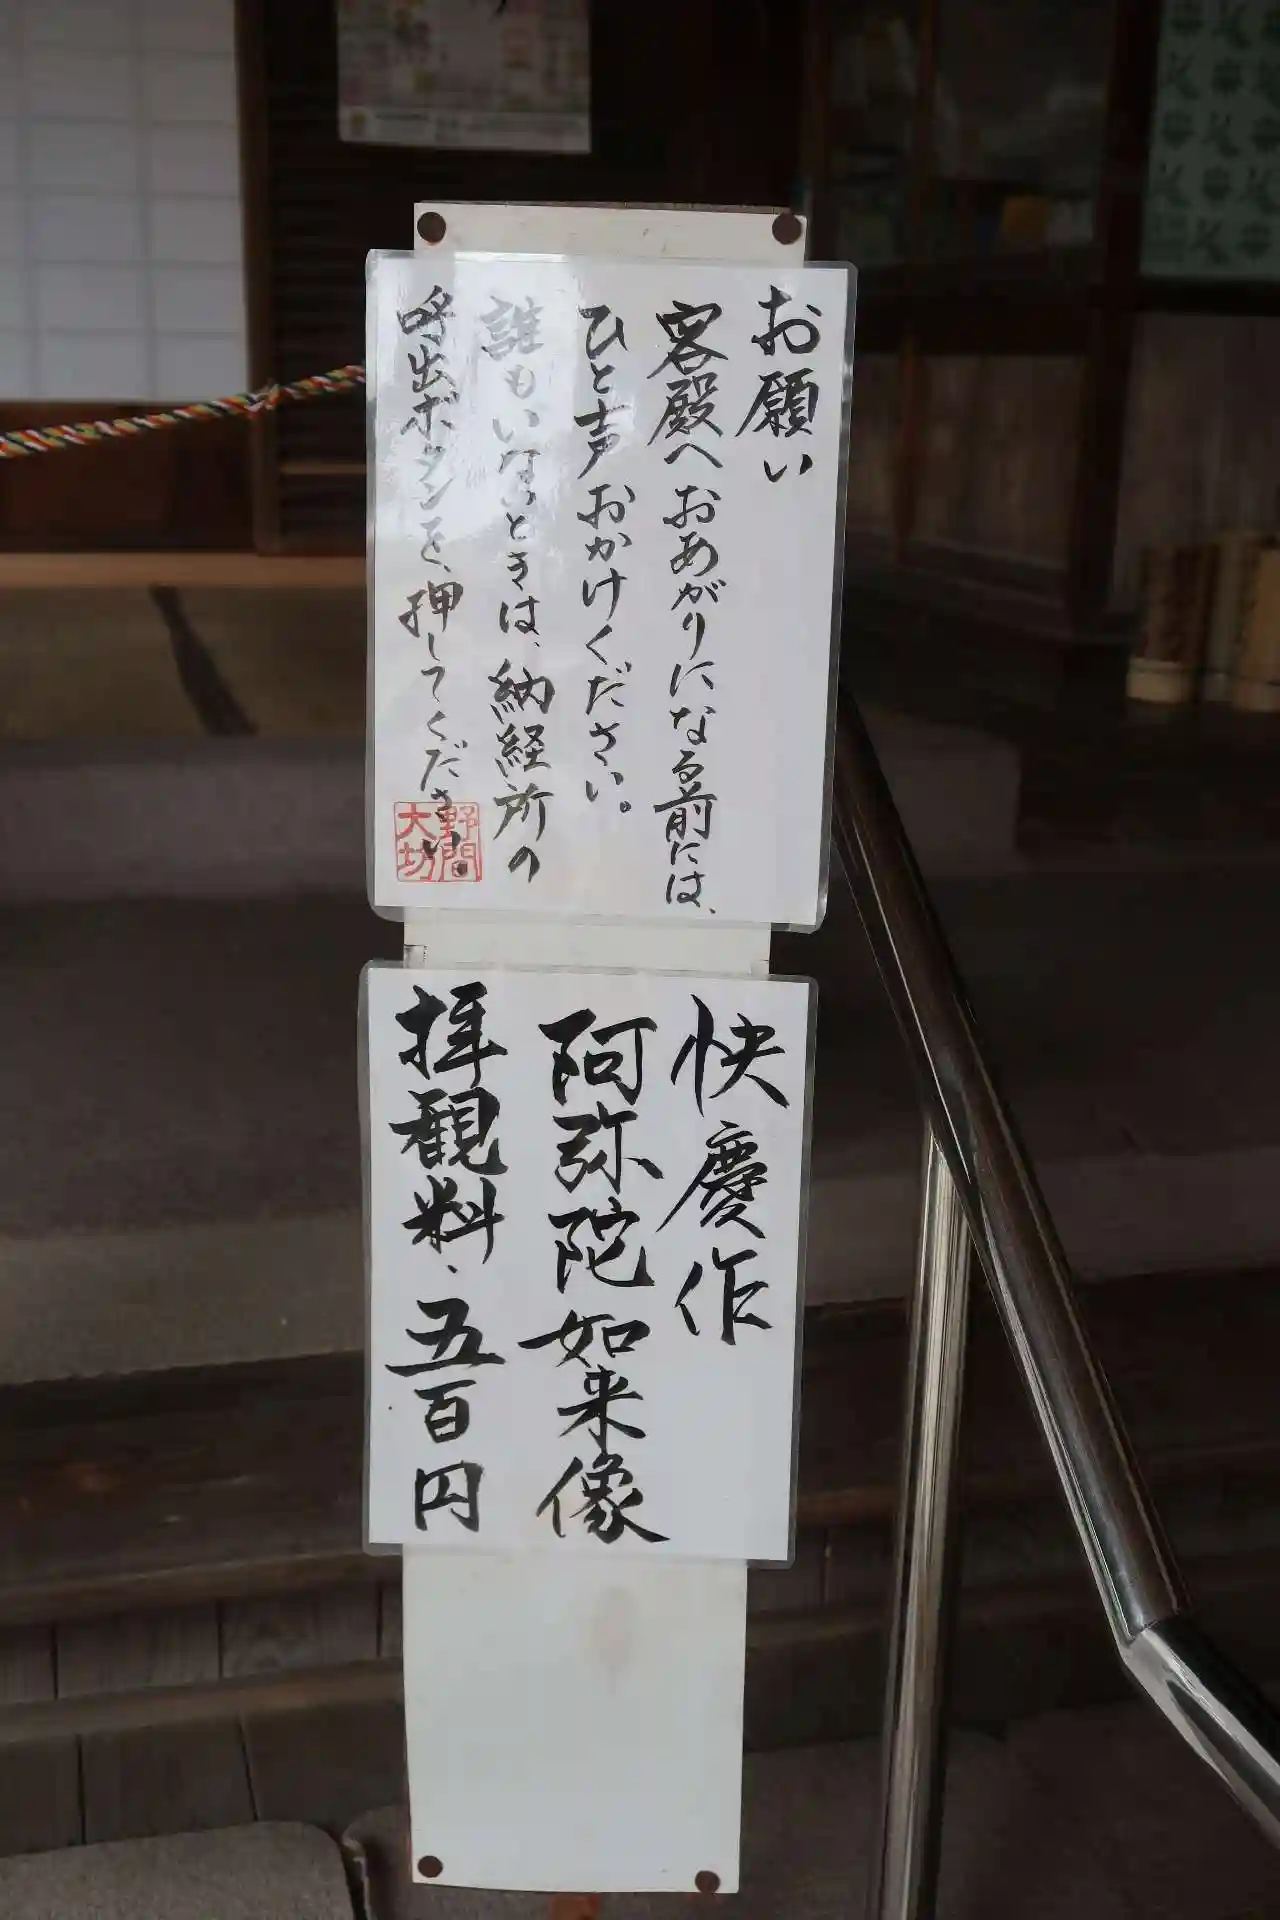 お願い
客殿へおあがりになる前には、
ひと声おかけください。
誰もいないときは、納経所の
呼出ボタンを、押してください。
野間
大坊
快慶作
阿弥陀如来像
拝観料・五百円